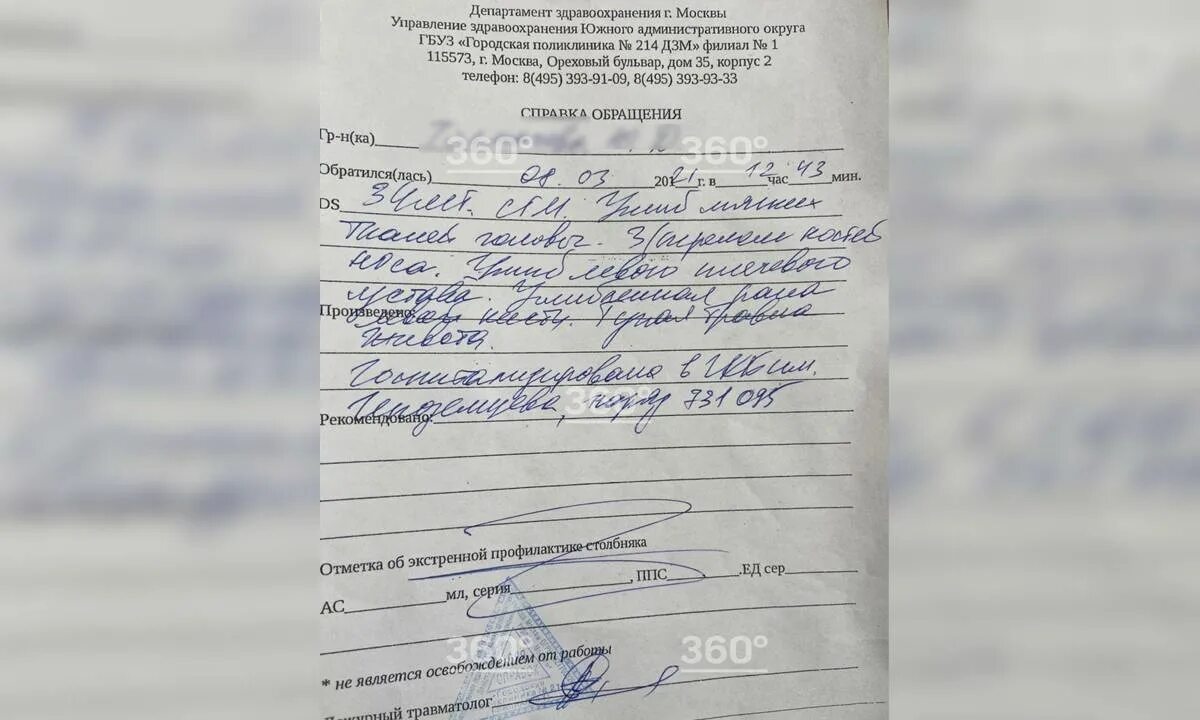 Департамент здравоохранения г. Москвы
Управление здравоохранения Южного административного округа
ГБУЗ «Городская поликлиника № 214 ДЗМ» филиал № 1
115573, г. Москва, Ореховый бульвар, дом 35, корпус 2
телефон: 8(495) 393-91-09, 8(495) 393-93-33
СПРАВКА ОБРАЩЕНИЯ
Гр-н(ка)
360° 360°
Обратился(лась) 08.03 2021 г. в 12 час 43 мин.
DS ЗЧМТ. СГМ. Ушиб мягких
тканей головы. З/перелом костей
носа. Ушиб левого плечевого
сустава. Ушибленная рана
Произведено: кисти. Тупая травма
живота.
Госпитализирована в ГКБ им.
360°
Рекомендовано: наряд 731 095
Отметка об экстренной профилактике столбняка
АС мл, серия , ППС .ЕД сер
360° 360°
* не является освобождением от работы
Дежурный травматолог